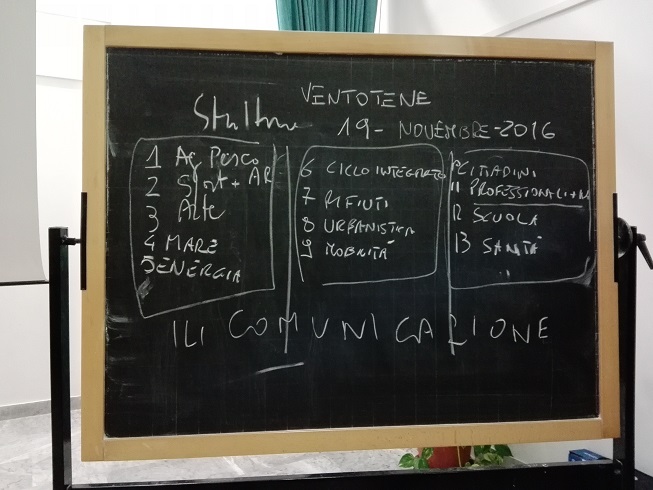 VENTOTENE
19 - NOVEMBRE - 2016
1 Ag Pesco
2 Sport + AR
3 Arte
4 MARE
5 ENERGIA
6 CICLO INTEGRATO
7 RIFIUTI
8 URBANISTICA
9 MOBILITÀ
CITTADINI
11 PROFESSIONALI
12 SCUOLA
13 SANITÀ
COMUNICAZIONE